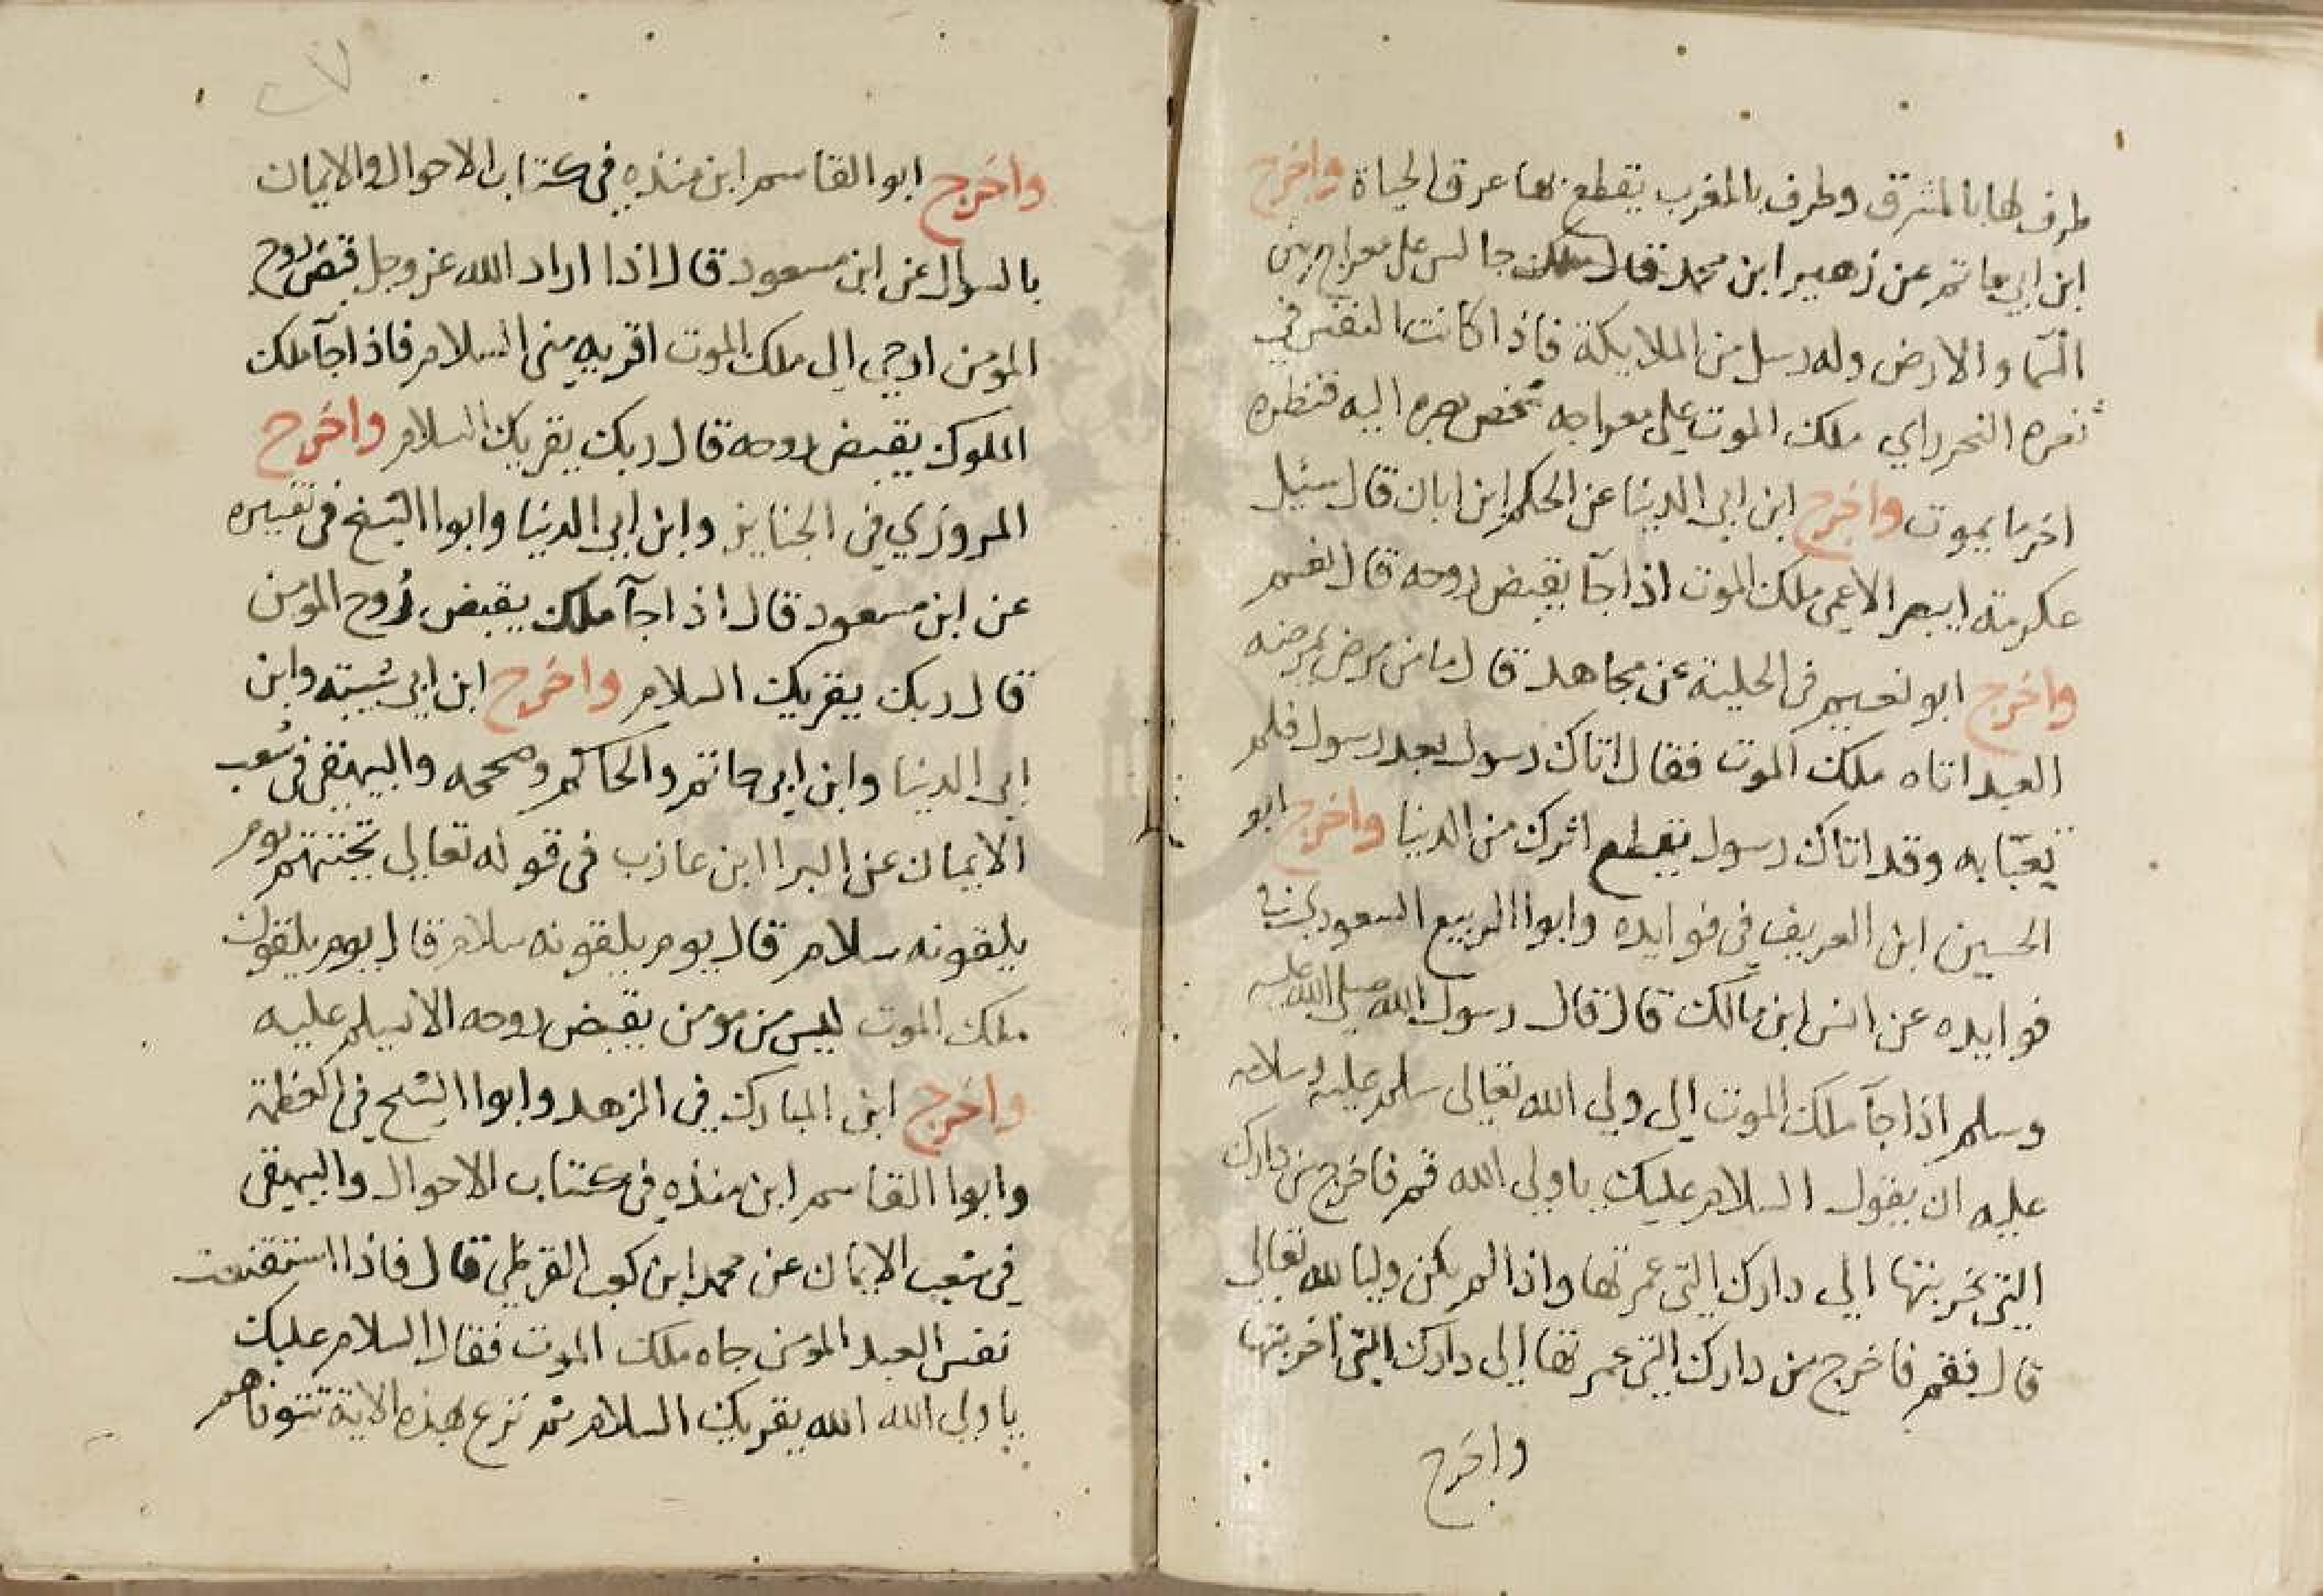 طرف لها بالمشرق وطرف بالمغرب يقطع بها عرق الحياة واخرج
ابن ابي حاتم عن زهير ابن محمد قال ملك جالس على معراج بين
السما والارض وله رسل من الملايكة فاذا كانت النفس في
ثغره النحر راي ملك الموت على معراجه شخص بصره اليه فنظره
اخر ما يموت واخرج ابن ابي الدنيا عن الحكم ابن ابان قال سئيل
عكرمة ايبصر الاعمى ملك الموت اذا جآ يقبض روحه قال نعم
واخرج ابو نعيم في الحلية عن مجاهد قال ما من مرض يمرضه
العبد اتاه ملك الموت فقال اتاك رسول بعد رسول فلم
تعبّا به وقد اتاك رسول يقطع اثرك من الدنيا واخرج ابو
الحسين ابن العريف في فوايده وابوا الربيع المسعودي في
فوايده عن انس ابن مالك قال قال رسول الله صلى الله عليه
وسلم اذا جآ ملك الموت الى ولي الله تعالى سلم عليه وسلامه
عليه ان يقول السلام عليك يا ولي الله قم فاخرج من دارك
التي خربتها الي دارك التي عمرتها واذا لم يكن وليا لله تعالى
قال فقم فاخرج من دارك التي عمرتها الي دارك التي اخربتها
واخرج
واخرج ابو القاسم ابن منذه في كتاب الاحوال والايمان
بالسوال عن ابن مسعود قال اذا اراد الله عز وجل قبض روح
المومن اوحي الى ملك الموت اقريه مني السلام فاذا جآ ملك
الملوك يقبض روحه قال ربك يقريك السلام واخرج
المروزي في الجنايز وابن ابي الدنيا وابوا الشيخ في تفسيره
عن ابن مسعود قال اذا جآ ملك يقبض رُوح المومن
قال ربك يقريك السلام واخرج ابن ابي شيبة وابن
ابي الدنيا وابن ابي حاتم والحاكم وصححه والبيهقي في شعب
الايمان عن البرا ابن عازب في قوله تعالي تحيتهم يوم
يلقونه سلام قال يوم يلقونه سلام قال يوم يلقون
ملك الموت ليس من مومن يقبض روحه الا يسلم عليه
واخرج ابن المبارك في الزهد وابوا الشيخ في العظمة
وابوا القاسم ابن منذه في كتاب الاحوال والبيهقي
في شعب الايمان عن محمد ابن كعب القرظي قال فاذا استقنعت
نفس العبد المومن جاه ملك الموت فقال السلام عليك
يا ولي الله الله يقريك السلام ثم نزع بهذه الاية تتوفاهم